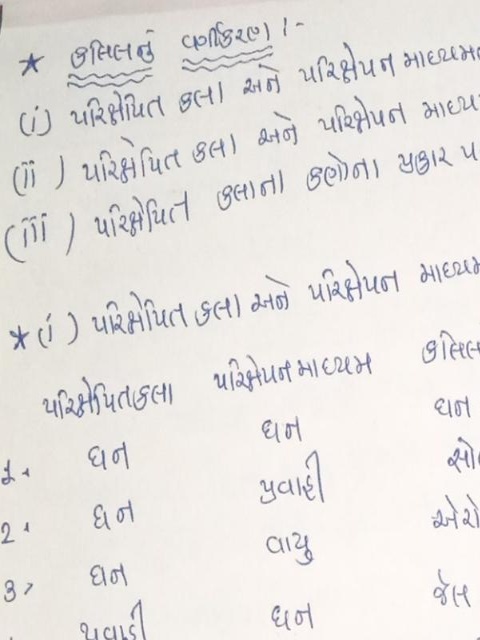 * કલિલનું વર્ગીકરણ :-
(i) પરિક્ષેપિત કલા અને પરિક્ષેપન માધ્યમ
(ii) પરિક્ષેપિત કલા અને પરિક્ષેપન
(iii) પરિક્ષેપિત કલાના કણોના પ્રકાર
* (i) પરિક્ષેપિત કલા અને પરિક્ષેપન માધ્યમ
પરિક્ષેપિત કલા પરિક્ષેપન માધ્યમ કલિલ
1. ઘન ઘન ઘન
2. ઘન પ્રવાહી
3> ઘન વાયુ
પ્રવાહી ઘન જેલ